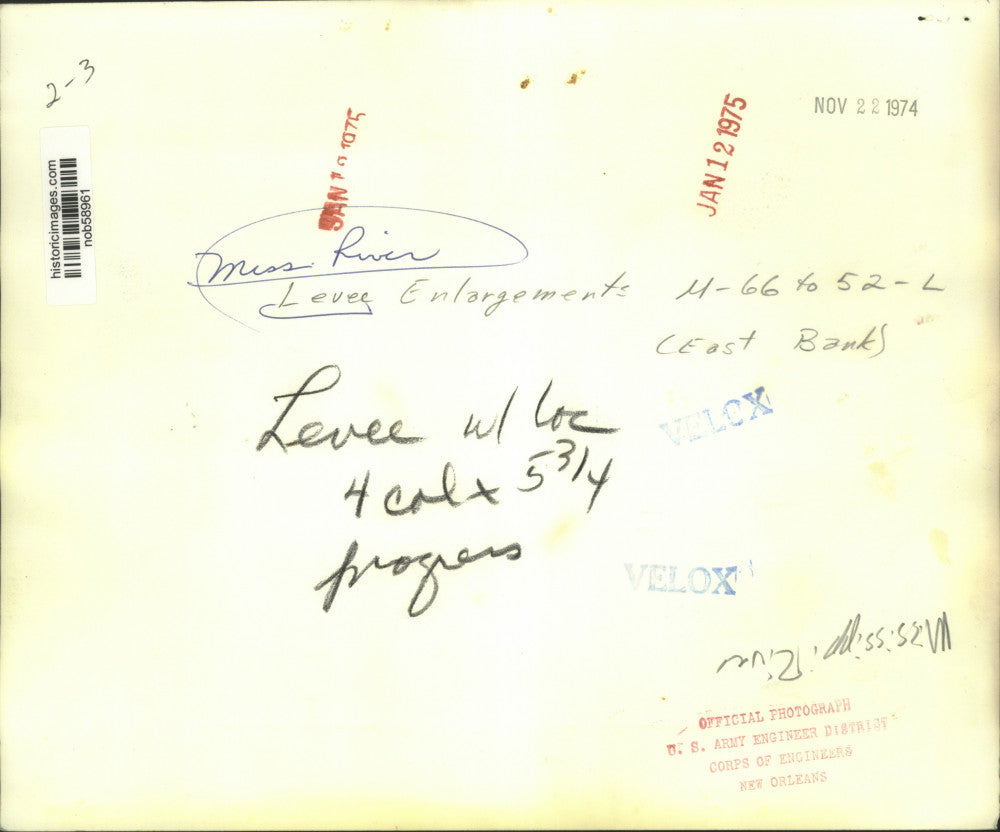 2-3
NOV 22 1974
JAN 12 1975
JAN 1975
historicimages.com
nob58961
Miss. River
Levee Enlargements M-66 to 52-L
(East Bank)
Levee w/ loc
4 col x 5 3/4
progress
VELOX
VELOX
Mississippi River
OFFICIAL PHOTOGRAPH
U. S. ARMY ENGINEER DISTRICT
CORPS OF ENGINEERS
NEW ORLEANS